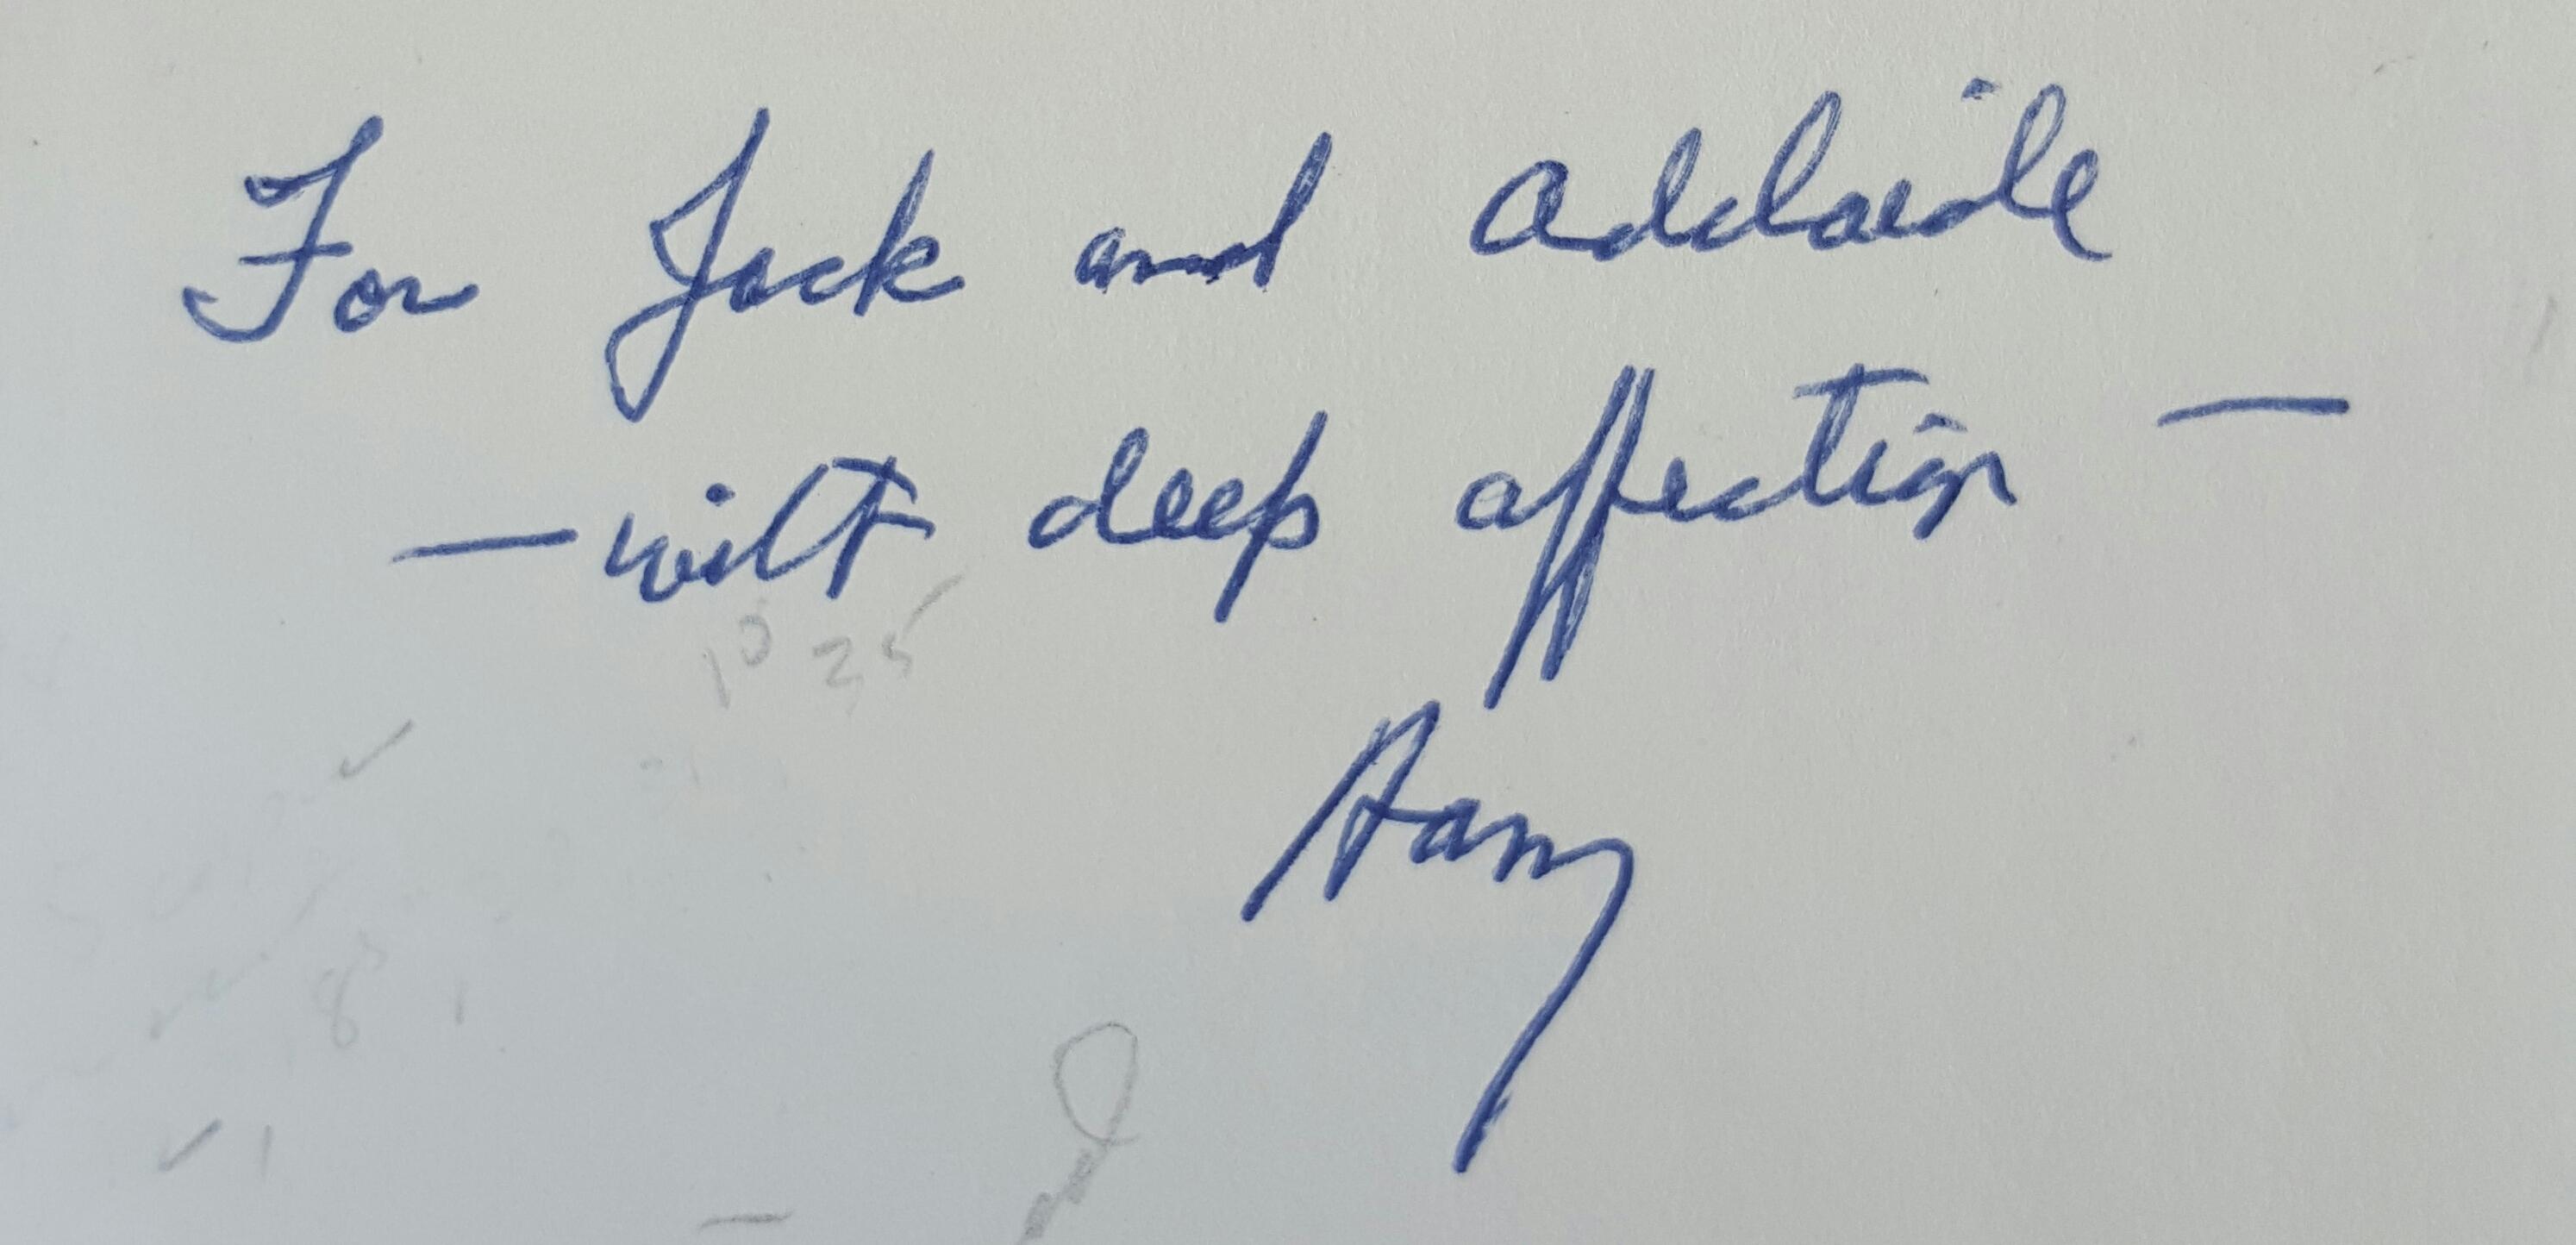 For Jack and Adelaide
— with deep affection —
Harry